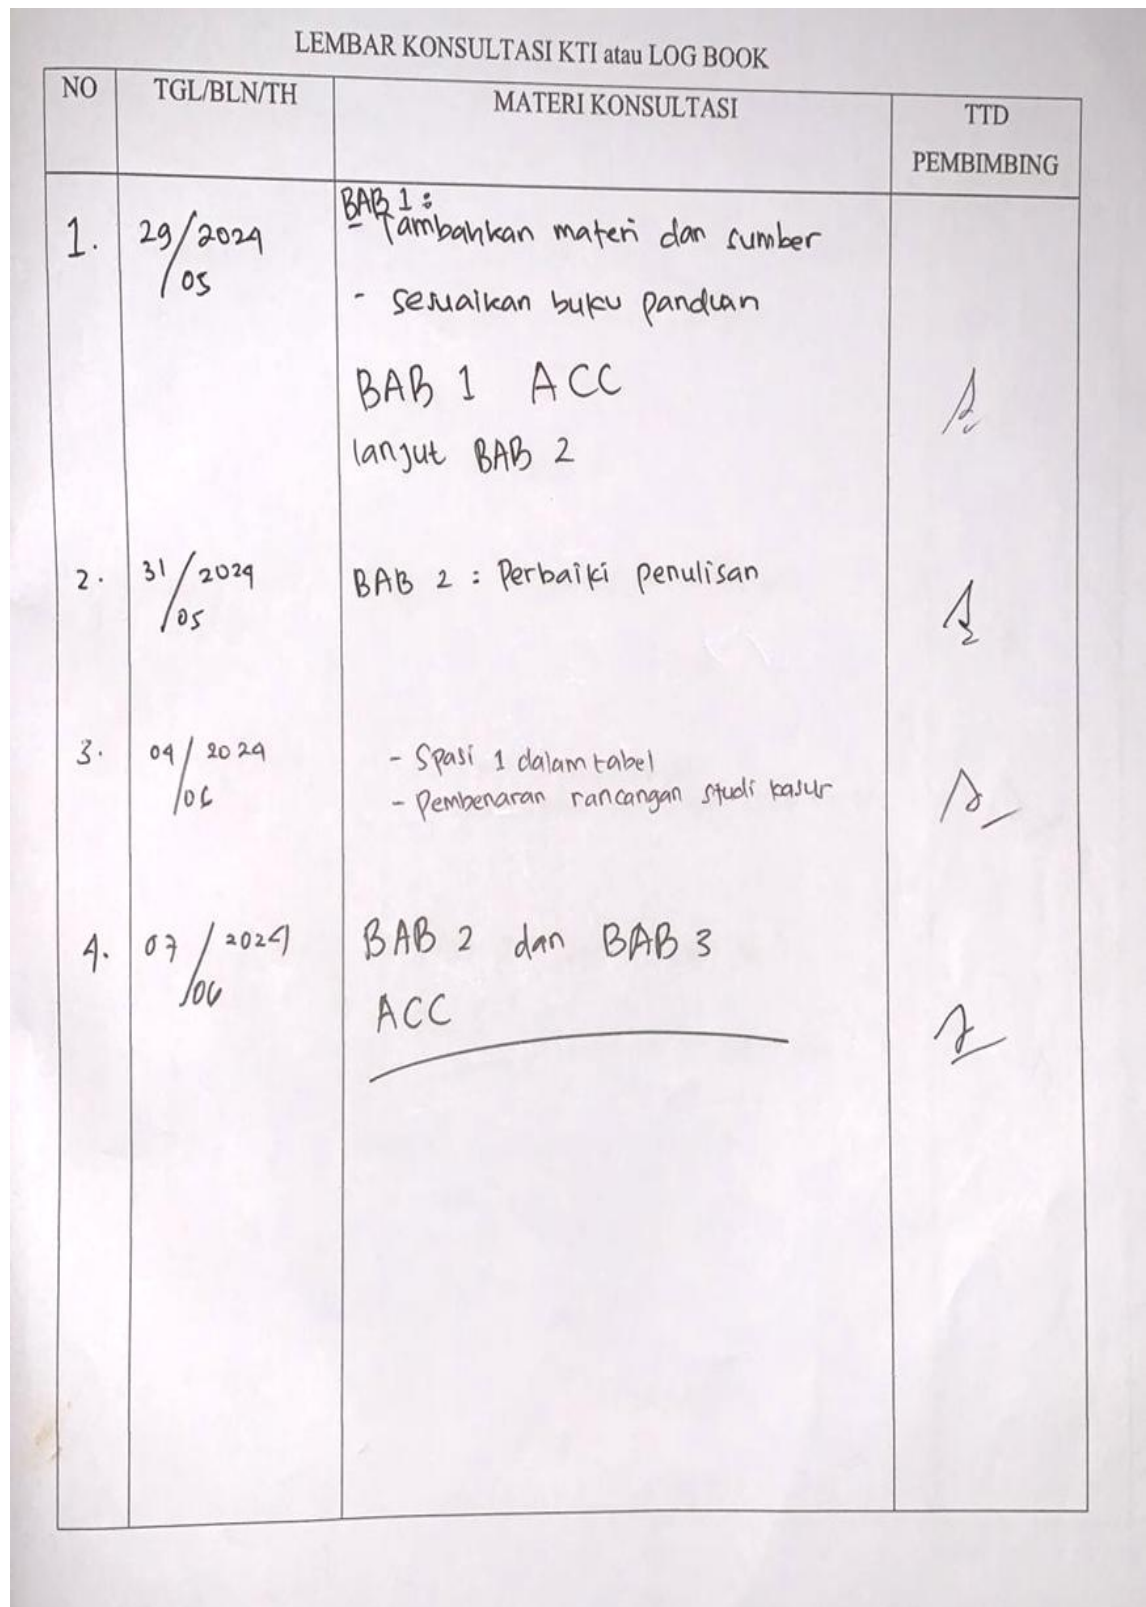 LEMBAR KONSULTASI KTI atau LOG BOOK
NO TGL/BLN/TH MATERI KONSULTASI TTD PEMBIMBING
1. 29/05/2024 BAB 1 :
- Tambahkan materi dan sumber
- sesuaikan buku panduan
BAB 1 ACC
lanjut BAB 2
2. 31/05/2024 BAB 2 : Perbaiki penulisan
3. 04/06/2024 - Spasi 1 dalam tabel
- Pembenaran rancangan studi kasus
4. 07/06/2024 BAB 2 dan BAB 3
ACC